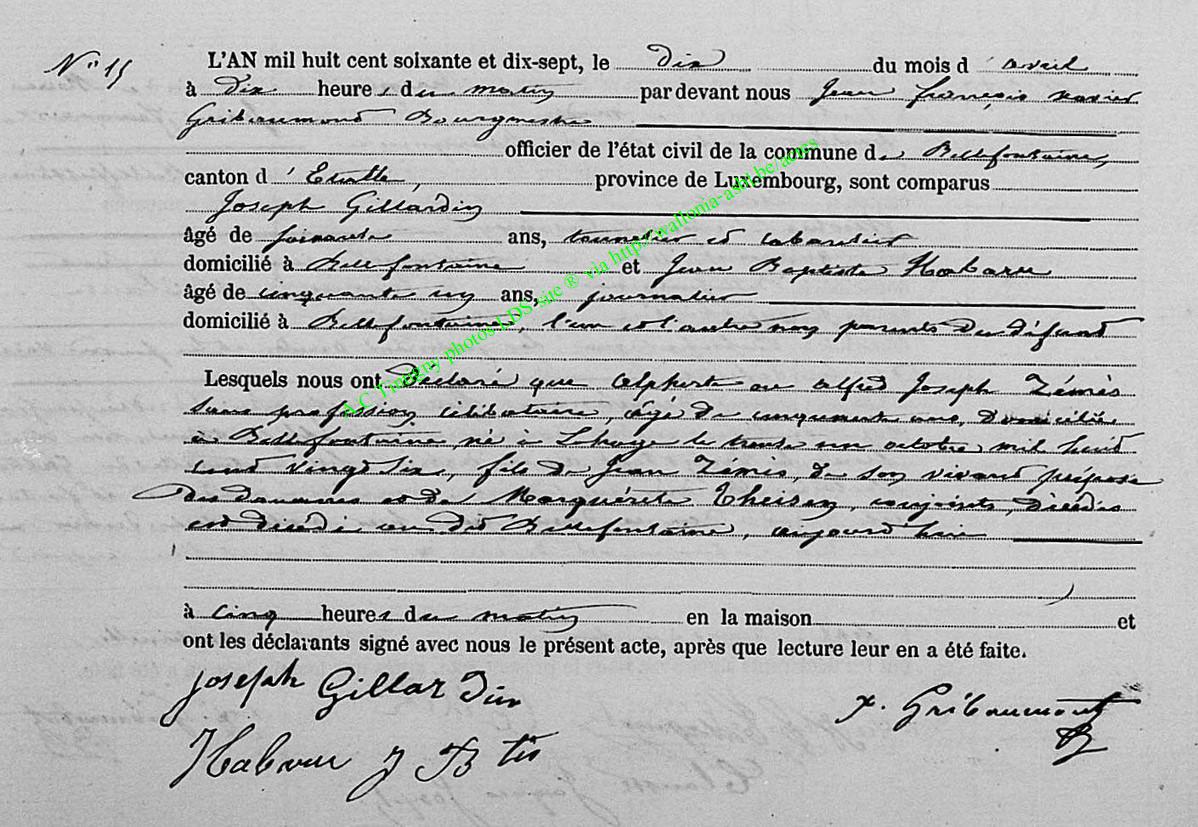 N° 15
L'AN mil huit cent soixante et dix-sept, le dix du mois d'avril
à dix heures du matin par devant nous Jean françois xavier
Gribaumont Bourgmestre
officier de l'état civil de la commune de Bellefontaine,
canton d'Etalle, province de Luxembourg, sont comparus
Joseph Gillardin
âgé de soixante ans, tonnelier et cabaretier
domicilié à Bellefontaine et Jean Baptiste Habaru
âgé de cinquante un ans, journalier
domicilié à Bellefontaine, l'un et l'autre non parents du défunt
Lesquels nous ont déclaré que Alphert ou Alfred Joseph Zémès
sans profession, célibataire, âgé de cinquante ans, domicilié
à Bellefontaine, né à le trente un octobre mil huit
cent vingt six, fils de Jean Zémès, de son vivant préposé
des douanes et de Marguérite Theisen, conjoints, décédés
est décédé au dit Bellefontaine, aujourd'hui
à cinq heures du matin en la maison et
ont les déclarants signé avec nous le présent acte, après que lecture leur en a été faite.
Joseph Gillardin
x. Gribaumont
Habaru J Bte
photos LDS site ® via http://wallonia-asbl.be/actes